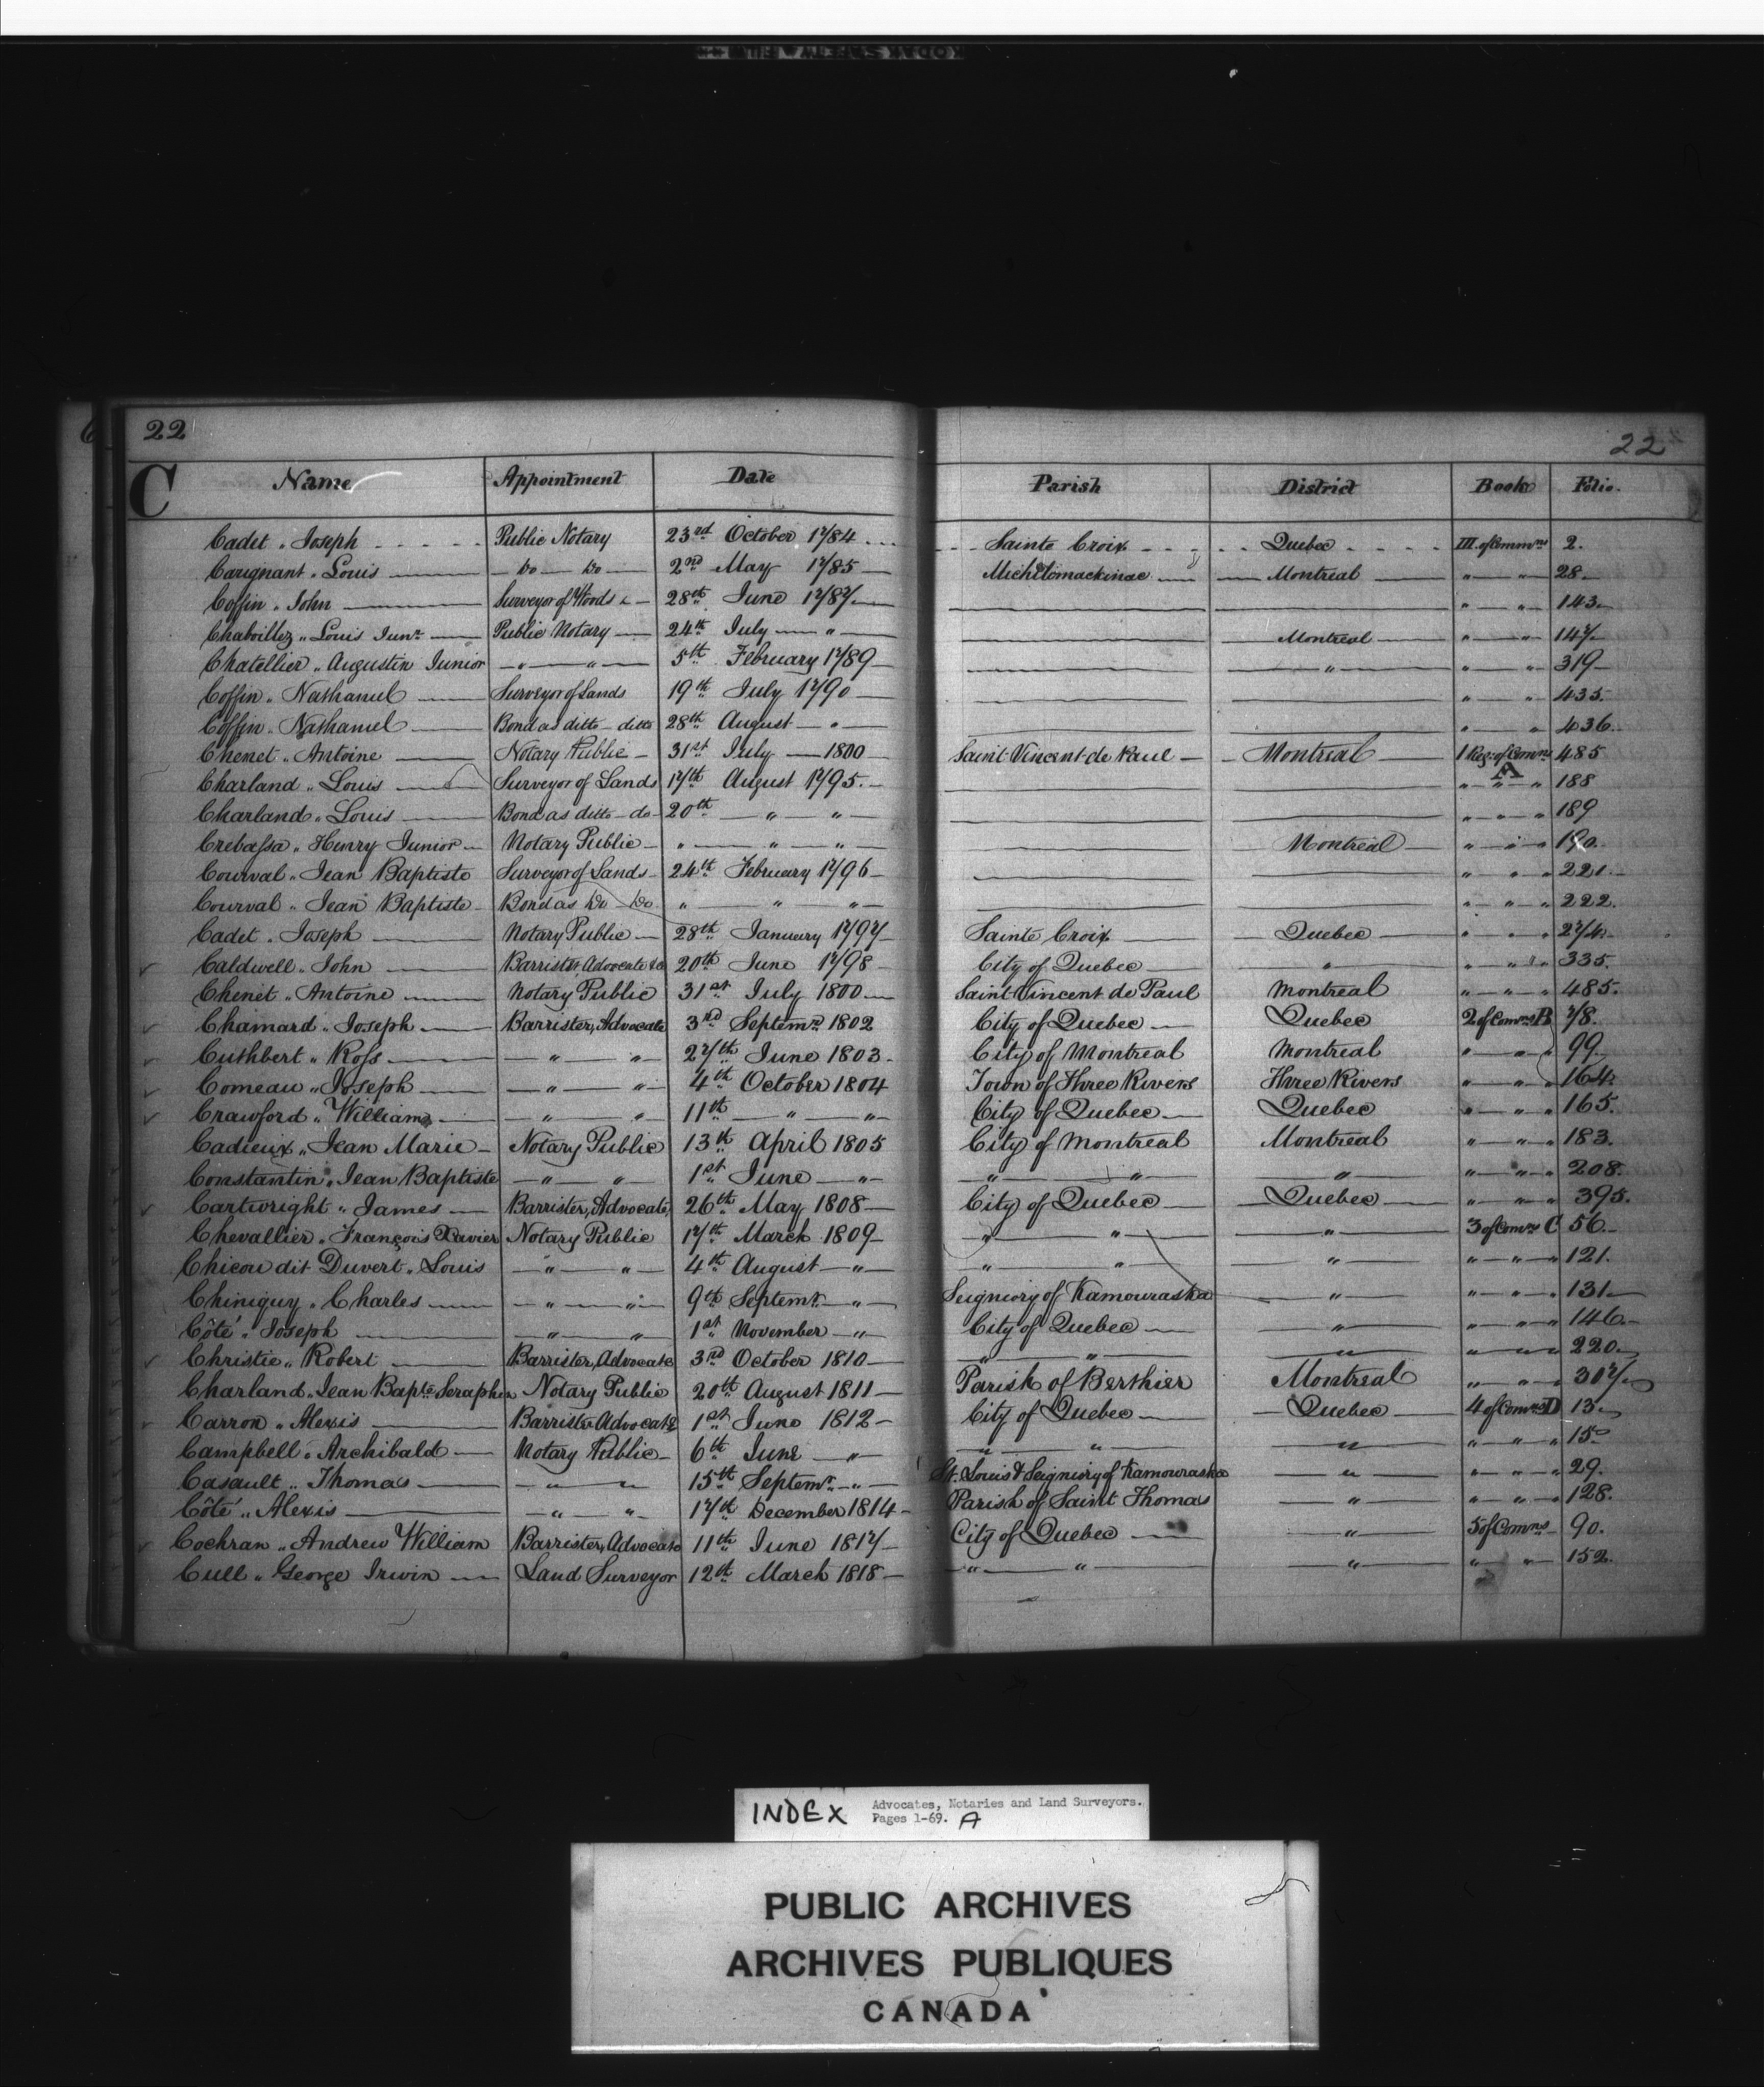 22
22
C Name Appointment Date Parish District Book Folio.
Cadet „ Joseph - - - - - Public Notary 23rd October 1784 - - - - - - Sainte Croix - - - - - Quebec - - - - III. of Commns 2.
Carignant „ Louis — Do — Do — 2nd May 1785 — Michilomackinac — Montreal — „ — „ — 28 —
Coffin „ John — Surveyor of Woods & — 28th June 1787 — „ — „ — 143 —
Chaboillez „ Louis Junr — Public Notary — 24th July — „ — Montreal — „ — „ — 147 —
Chatellier „ Augustin Junior — „ — „ — 5th February 1789 — „ — „ — „ — 319 —
Coffin „ Nathaniel — Surveyor of Lands 19th July 1790 — „ — „ — 435.
Coffin „ Nathaniel — Bond as ditto - ditto 28th August — „ — „ — „ — 436.
Chenet „ Antoine — Notary Public — 31st July — 1800 Saint Vincent de Paul — Montreal — 1 Reg: of Comns A 485
Charland „ Louis — Surveyor of Lands 17th August 1795. — „ — „ — „ 188
Charland „ Louis — Bond as ditto - do - 20th — „ — „ — „ „ „ 189
Crebassa „ Henry Junior — Notary Public — „ — „ — „ — Montreal — „ — „ — „ 190.
Courval „ Jean Baptiste Surveyor of Lands — 24th February 1796 — „ „ „ 221. —
Courval „ Jean Baptiste — Bond as Do — Do „ — „ — „ — „ „ „ 222.
Cadet „ Joseph — Notary Public — 28th January 1797 — Sainte Croix — Quebec — „ „ „ 274.
Caldwell „ John — Barrister, Advocate &c 20th June 1798 — City of Quebec — „ — „ „ „ 335.
Chenet „ Antoine — Notary Public 31st July 1800 — Saint Vincent de Paul Montreal „ — „ — „ 485.
Chamard „ Joseph — Barrister, Advocate 3rd Septemr 1802 City of Quebec — Quebec 2 of Comns B 78.
Cuthbert „ Ross — „ — „ 27th June 1803. City of Montreal Montreal „ — „ 99.
Comeau „ Joseph — „ — „ — 4th October 1804 Town of Three Rivers Three Rivers „ — „ „ 164.
Crawford „ William — „ — „ 11th — „ — „ — City of Quebec — Quebec „ — „ „ 165.
Cadieux „ Jean Marie — Notary Public 13th April 1805 City of Montreal Montreal „ — „ „ 183.
Constantin „ Jean Baptiste — „ — „ 1st June — „ — „ — „ „ „ — „ „ 208.
Cartwright „ James — Barrister, Advocate, 26th May 1808 — City of Quebec — Quebec — „ — „ „ 395.
Chevallier „ François Xavier Notary Public 17th March 1809 — „ — „ — „ — 3 of Comns C 56. —
Chicou dit Duvert „ Louis — „ — „ — 4th August — „ — „ „ — „ — „ — „ „ 121.
Chiniquy „ Charles — „ — „ — 9th Septemr. — „ — Seigniory of Kamouraska — „ — „ — „ „ 131 —
Côté „ Joseph — „ — „ — 1st November — „ — City of Quebec — „ — „ — „ „ 146. —
Christie „ Robert — Barrister, Advocate 3rd October 1810 — „ — „ — „ — „ — „ „ 220.
Charland „ Jean Bapte Seraphin Notary Public 20th August 1811 — Parish of Berthier Montreal „ — „ „ 307.
Carron „ Alexis — Barrister Advocate 1st June 1812 — City of Quebec — Quebec — 4 of Comns D 13.
Campbell „ Archibald — Notary Public — 6th June — „ — „ — „ — „ — „ — „ „ 15.
Casault „ Thomas — „ — „ 15th Septemr. — „ — St. Louis & Seigniory of Kamouraska — „ — „ — „ „ 29.
Côté „ Alexis — „ — „ — 17th December 1814 — Parish of Saint Thomas — „ — „ — „ „ 128.
Cochran „ Andrew William Barrister, Advocate 11th June 1817 — City of Quebec — „ — 5 of Comns — 90.
Cull „ George Irwin — Land Surveyor 12th March 1818 — „ — „ — „ — „ — „ — 152.
INDEX Advocates, Notaries and Land Surveyors.
Pages 1-69. A
PUBLIC ARCHIVES
ARCHIVES PUBLIQUES
CANADA